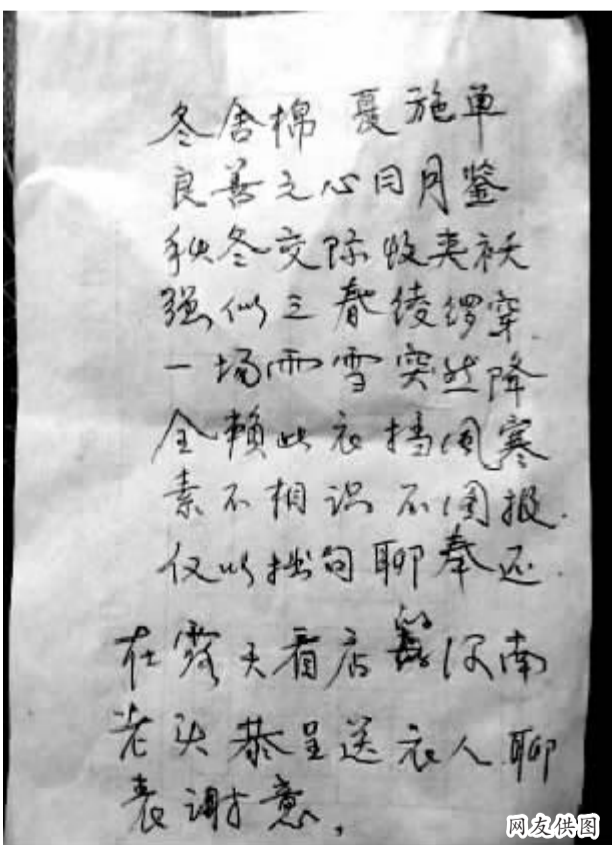 冬舍棉 夏施单
良善之心日月鉴
秋冬交际收夹袄
强似三春绫缪穿
一场雨雪突然降
全赖此衣挡风寒
素不相识不图报.
仅以拙句聊奉还.
在露天看店 汉南
老头恭呈送衣人聊
表谢意。
网友供图